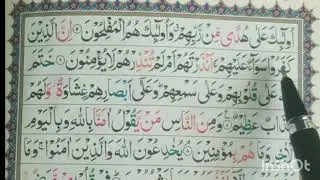 اُولٰٓئِكَ عَلٰى هُدًى مِّنْ رَّبِّهِمْ وَاُولٰٓئِكَ هُمُ الْمُفْلِحُوْنَ اِنَّ الَّذِيْنَ
كَفَرُوْا سَوَآءٌ عَلَيْهِمْ ءَاَنْذَرْتَهُمْ اَمْ لَمْ تُنْذِرْهُمْ لَا يُؤْمِنُوْنَ خَتَمَ
عَلٰى قُلُوْبِهِمْ وَعَلٰى سَمْعِهِمْ وَعَلٰٓى اَبْصَارِهِمْ غِشَاوَةٌ وَّلَهُمْ
عَذَابٌ عَظِيْمٌ وَمِنَ النَّاسِ مَنْ يَّقُوْلُ اٰمَنَّا بِاللّٰهِ وَبِالْيَوْمِ
الْاٰخِرِ وَمَا هُمْ بِمُؤْمِنِيْنَ يُخٰدِعُوْنَ اللّٰهَ وَالَّذِيْنَ اٰمَنُوْا وَمَا